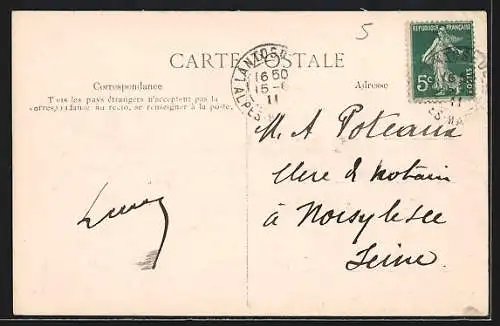 5
CARTE POSTALE
Correspondance
Tous les pays étrangers n'acceptent pas la
correspondance au recto, se renseigner à la poste.
Adresse
LANTOSQUE
16 50
15 -6
11
ALPES-MAR
REPUBLIQUE FRANÇAISE
5c
POSTES
M. A Poteaux
Clerc de Notaire
à Noisy le Sec
Seine